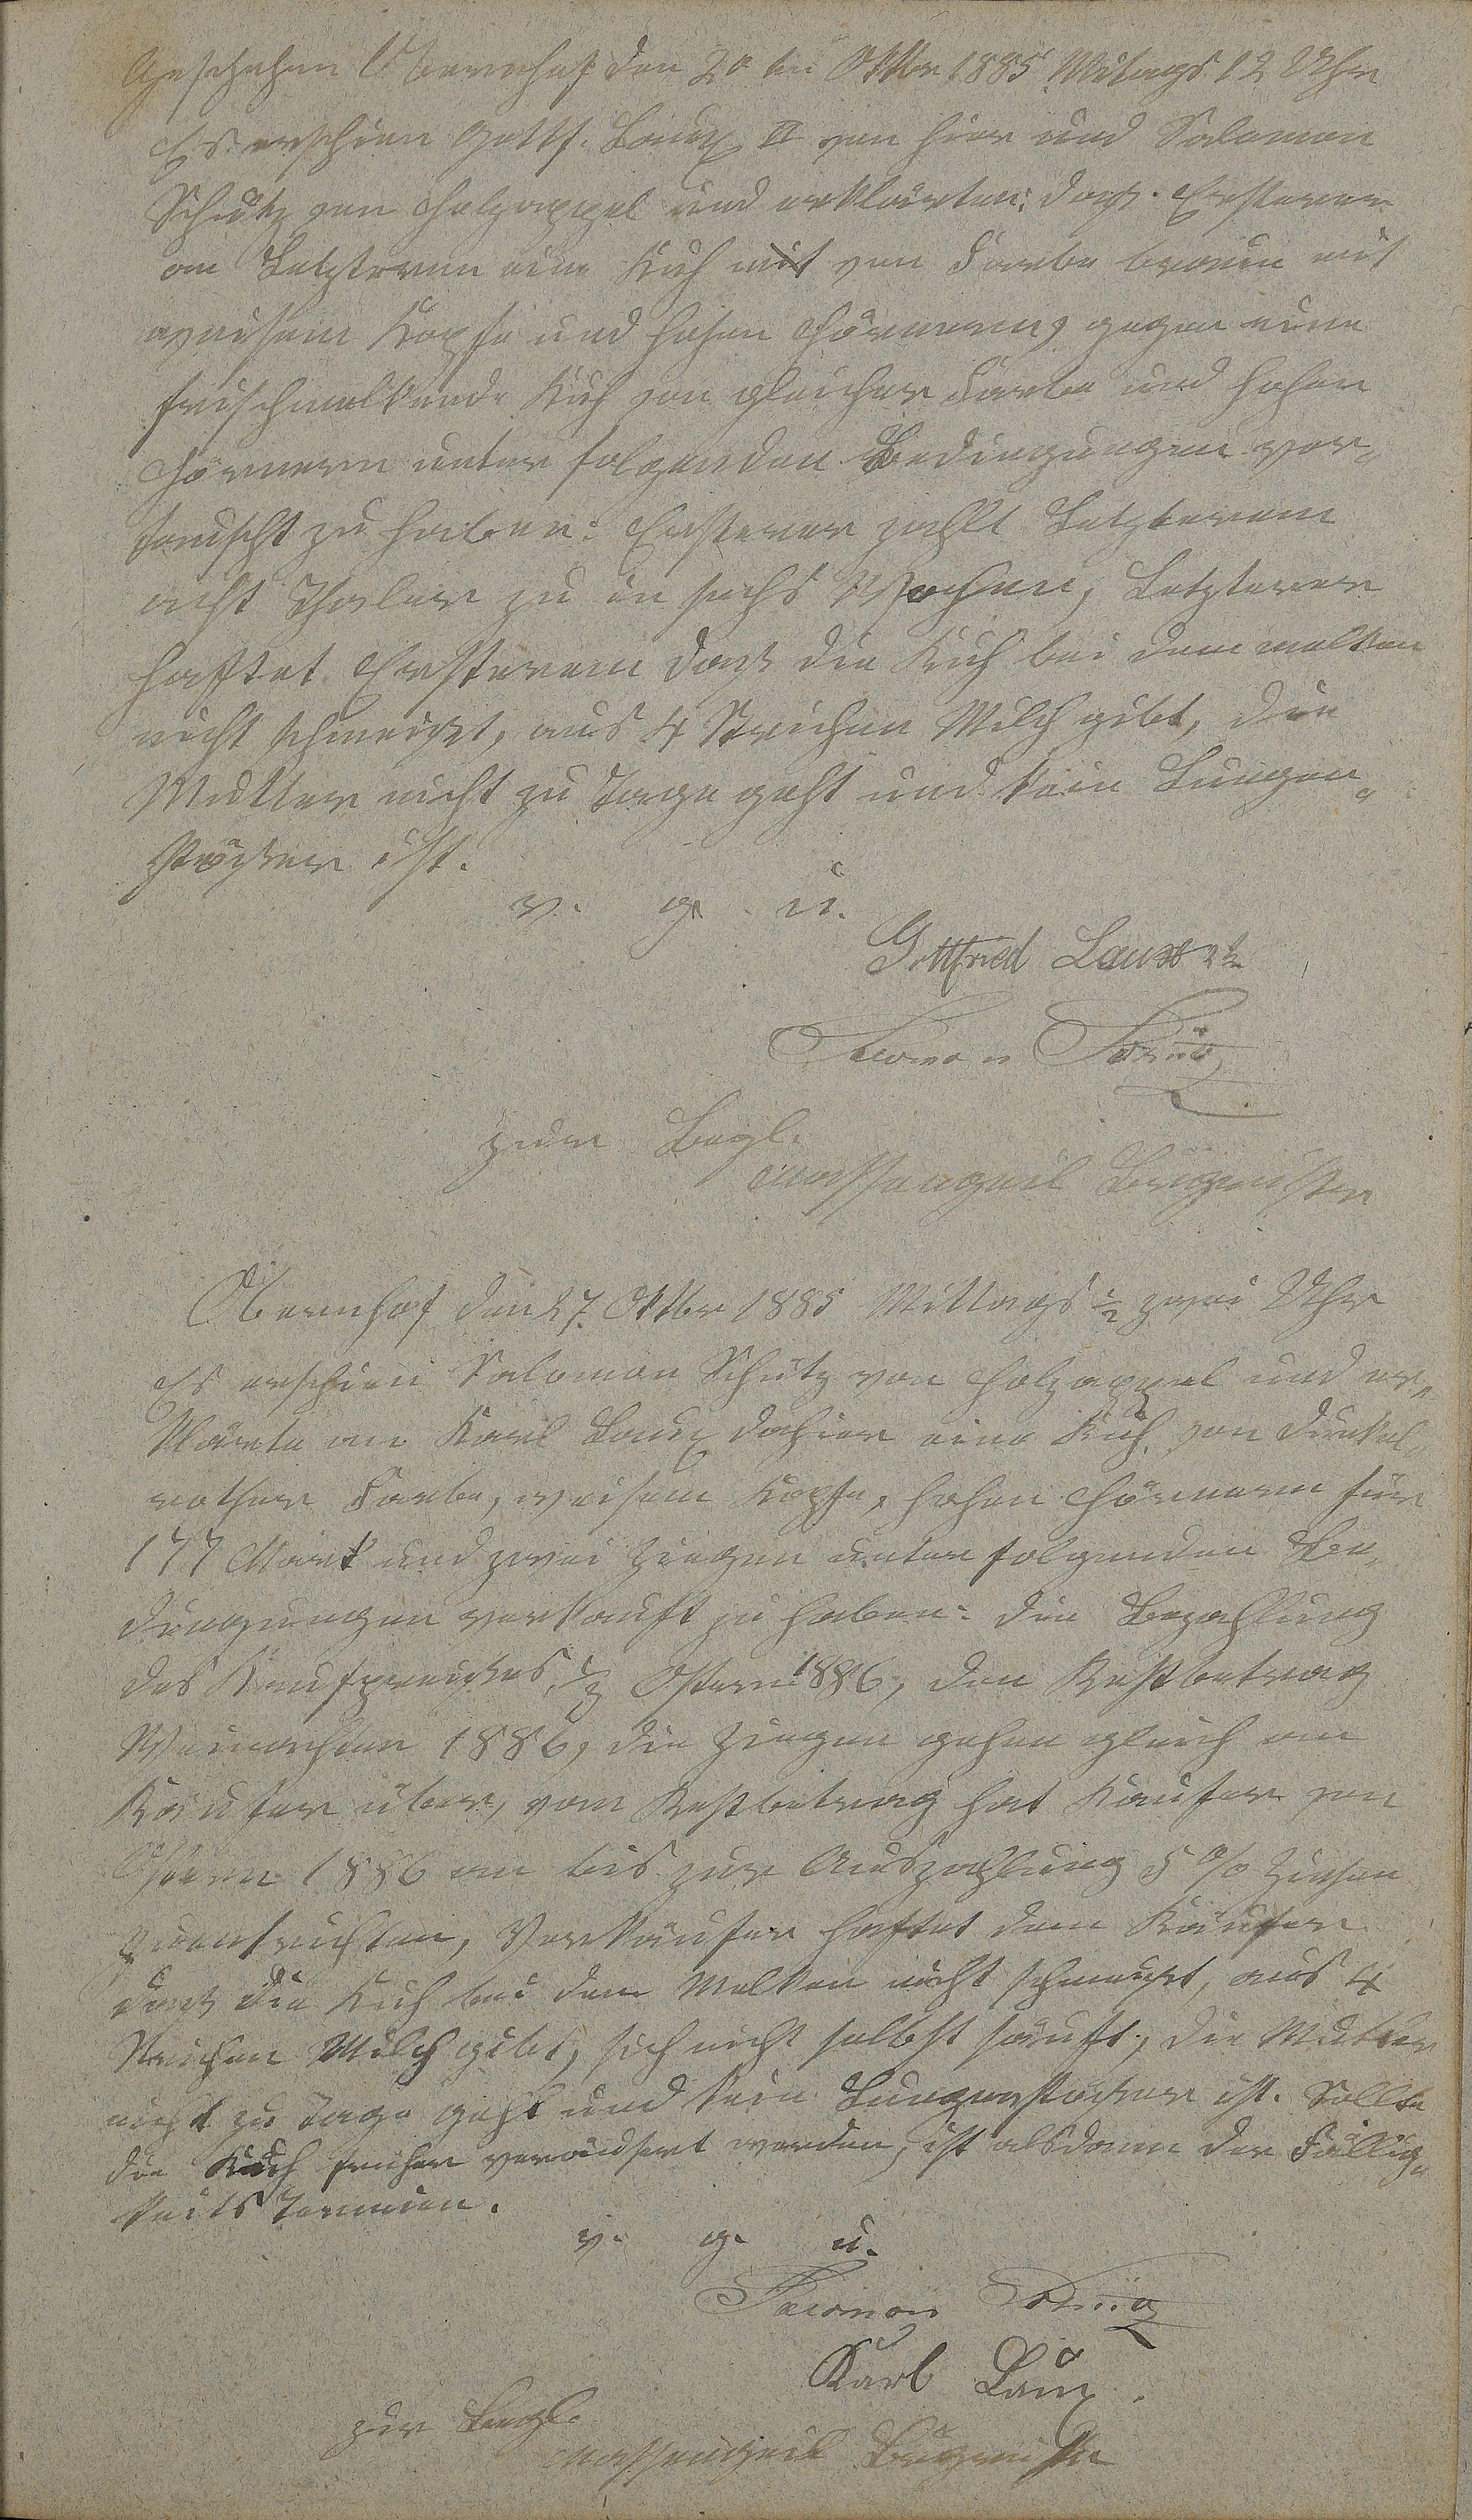 Geschehen Obernhof den 20 ten Oktbr 1885 Mitags 12 Uhr
Es erschien Gottf. Laux II von hier und Salomon
Schütz von Holzappel und erklärten: daß Ersterer
an Letzteren eine Kuh mit von Farbe braun mit
weisem Kopfe und hohen Hörnern, gegen eine
frischmelkende Kuh von gleicher Farbe und hohen
Hörnern unter folgenden Bedingungen ver„
tauscht zu haben: Ersterer zahlt Letzterem
acht Thaler zu in sechs Wochen, Letzterer
haftet Ersterem daß die Kuh bei dem melken
nicht schmeißt, aus 4 Strichen Milch gibt, die
Mutter nicht zu Tage geht und kein Lungen„
stößer ist.
v. g. u.
Gottfried Laux 2te
Salomon Schütz
zur Begl.
Massengeil Bürgmister
Obernhof den 27. Oktbr 1885 Mittags ½ zwei Uhr
Es erschien Salomon Schütz von Holzappel und er„
klärte an Karl Laux dahier eine Kuh, von dunkel„
rother Farbe, weisem Kopfe, hohen Hörnern für
177 Mark und zwei Ziegen unter folgenden Be„
dingungen verkauft zu haben: die Bezahlung
des Kaufpreißes, Ostern 1886, den Restbetrag
Weinachten 1886, die Ziegen gehen gleich an
Käufer über, vom Restbetrag hat Käufer von
Ostern 1886 an bis zur Auszahlung 5 % Zinsen
zuentrichten, Verkäufer haftet dem Käufer
daß die Kuh bei dem Melken nicht schmeißt, aus 4
Strichen Milch gibt, sich nicht selbst säuft, die Mutter
nicht zu Tage geht und kein Lungenstößer ist. Sollte
die Kuh früher veräußert werden, ist alsdann der Fällig„
keits Termien.
v. g. u.
Salomon Schütz
Karl Laux.
zur Begl.
Massengeil Bürgmister